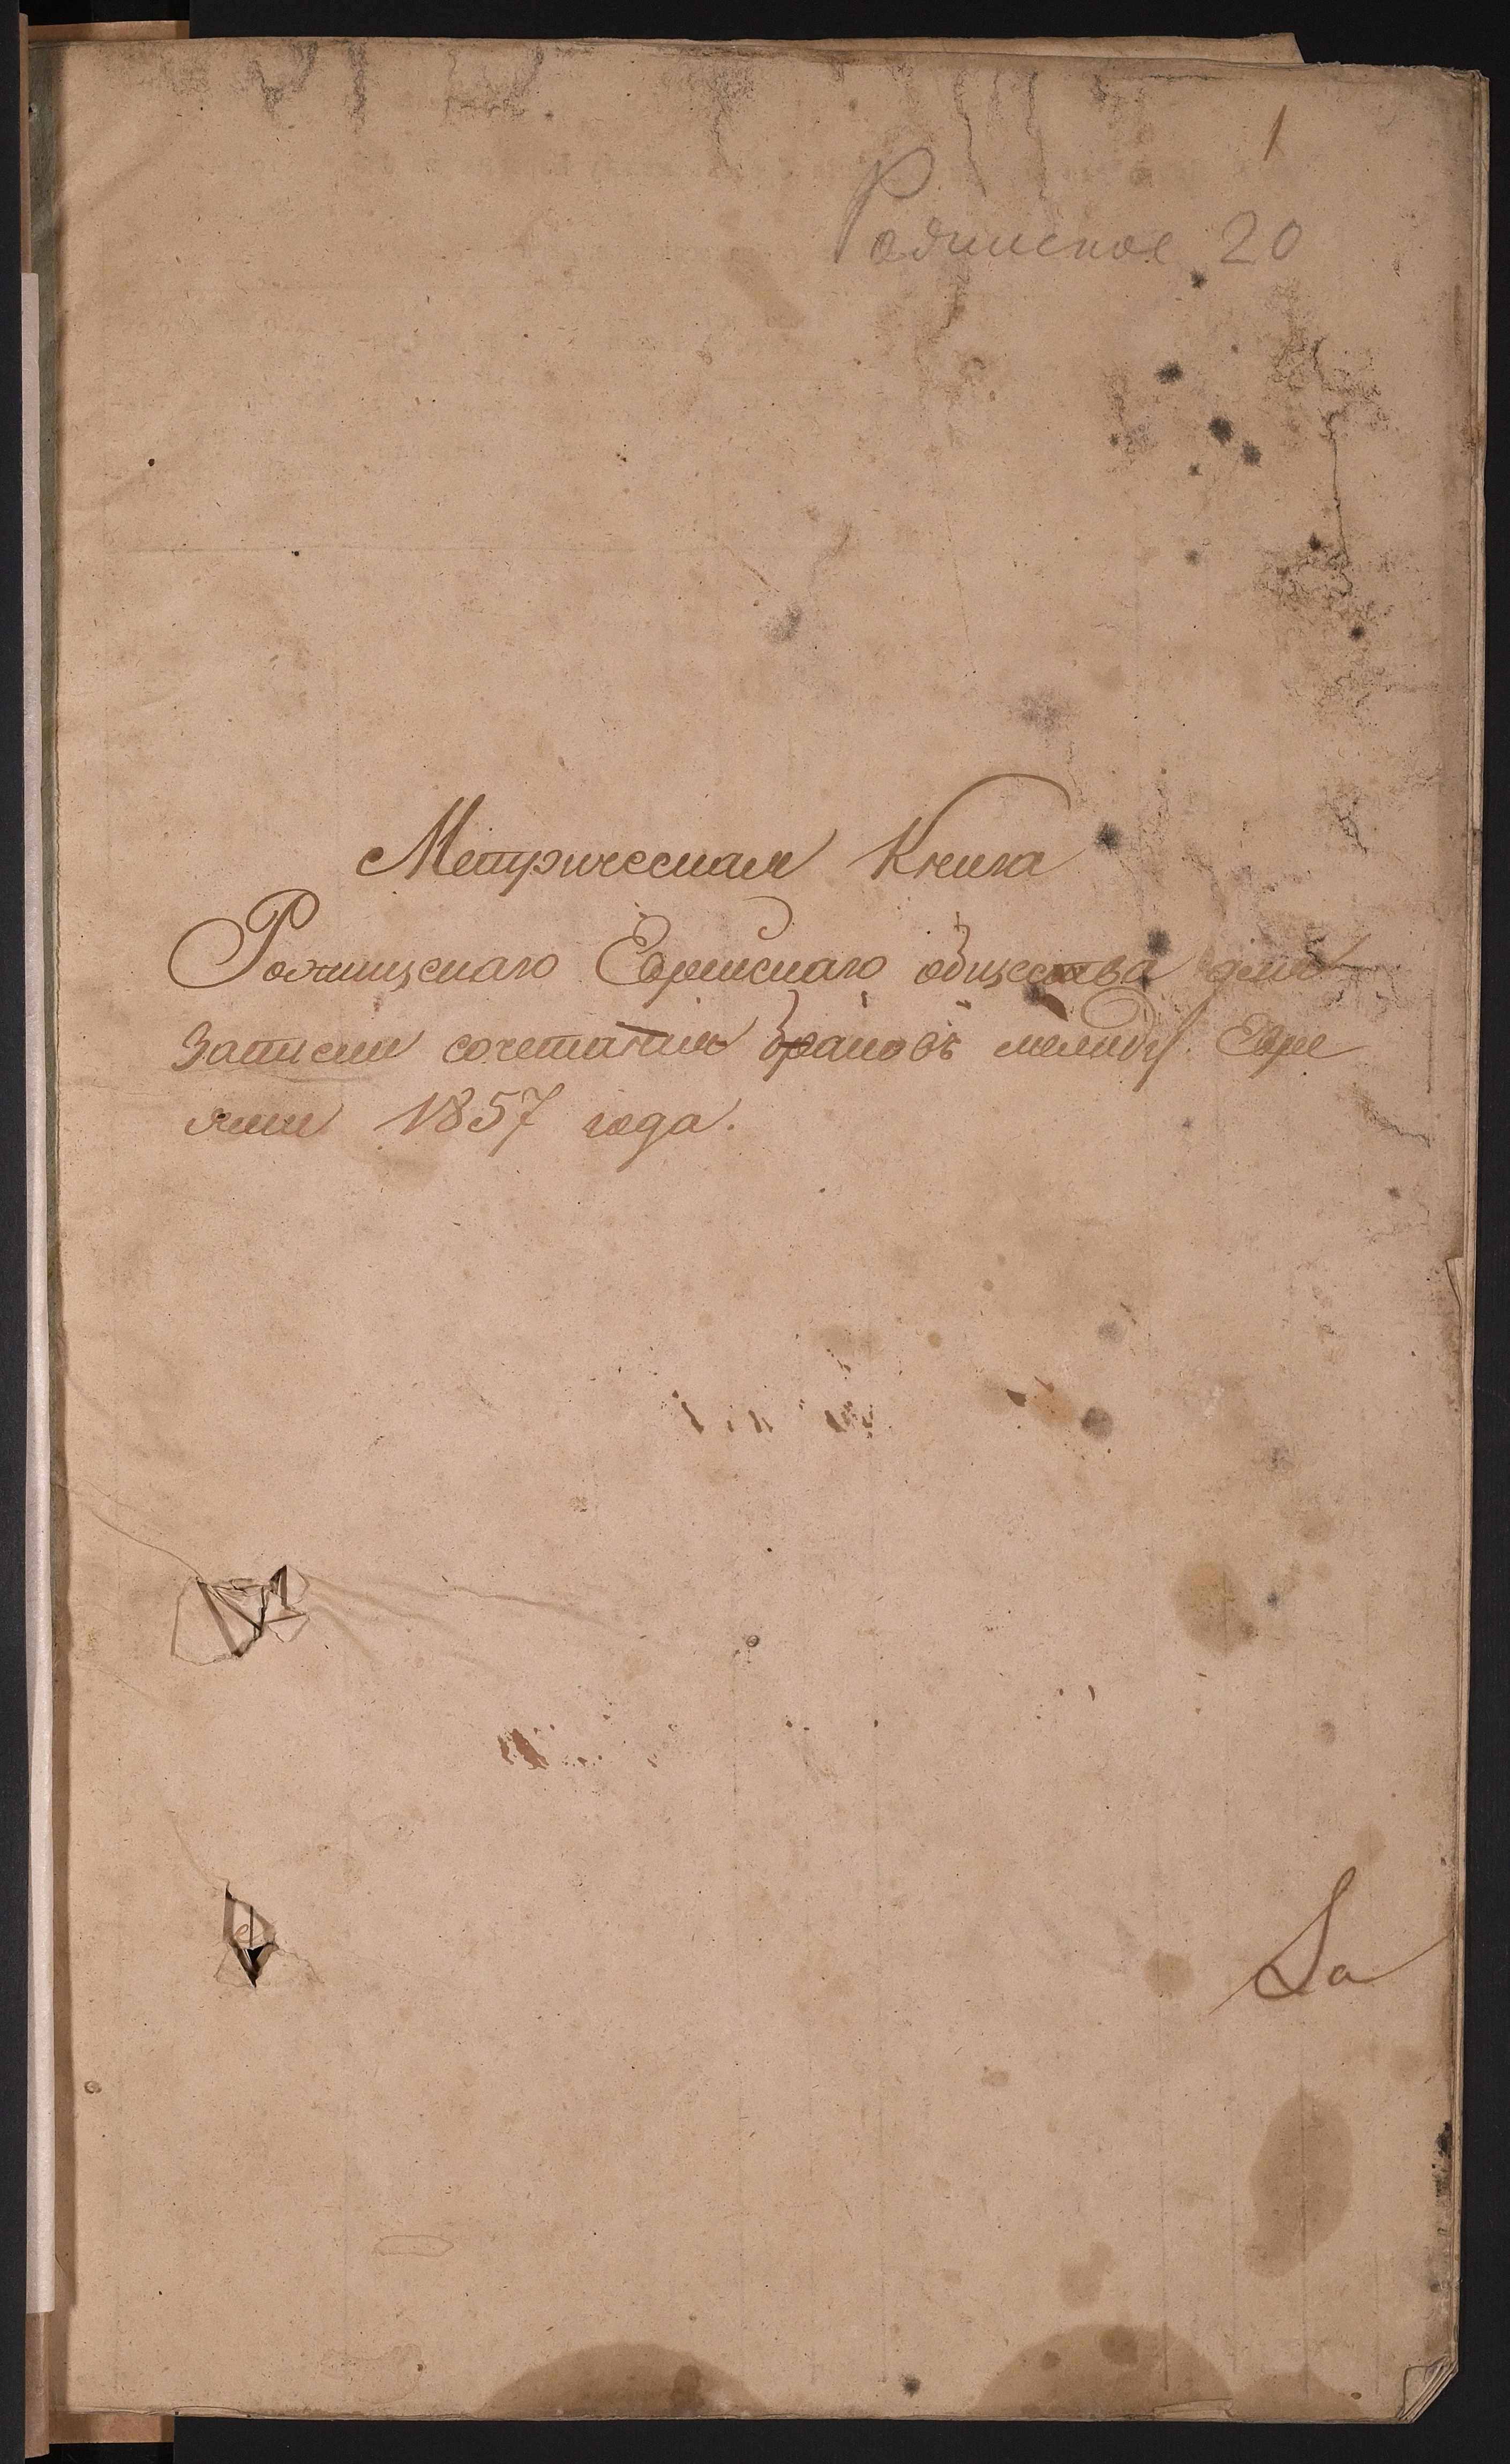 1
Рожищское 20
Метрическая Книга
Рожищскаго Еврейскаго общества для
записки сочетания браковъ между Евре
ями 1857 года.